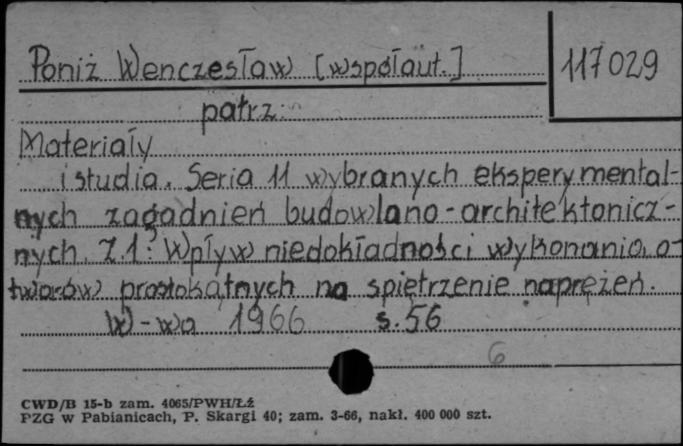 Poniż Wenczesław [współaut.]
117029
patrz:
Materiały
i studia. Seria 11 wybranych eksperymental-
nych zagadnień budowlano-architektonicz-
nych. Z.1: Wpływ niedokładności wykonania o-
tworów prostokątnych na spiętrzenie naprężeń.
W-wa 1966 s. 56
6
CWD/B 15-b zam. 4065/PWH/Łź
PZG w Pabianicach, P. Skargi 40; zam. 3-66, nakł. 400 000 szt.